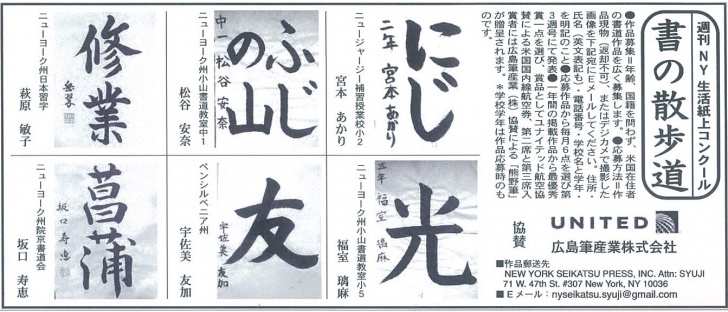 週刊NY生活紙上コンクール
書の散歩道
●作品募集＝年齢、国籍を問わず、米国在住者
の書道作品を広く募集します。●応募方法＝作
品現物（返却不可）、またはデジカメで撮影した
画像を下記宛にEメールしてください。住所・
氏名（英文表記も）・電話番号・学校名と学年・
を明記のこと●応募作品から毎月6点を選び第
3週号にて発表●一年間の掲載作品から最優秀
賞一点を選び、賞品としてユナイテッド航空協
賛による米国国内線航空券、第二席と第三席入
賞者には広島筆産業（株）協賛による「熊野筆」
が贈呈されます。＊学校学年は作品応募時のも
のです。
協賛
UNITED
広島筆産業株式会社
■作品郵送先
NEW YORK SEIKATSU PRESS, INC. Attn: SYUJI
71 W. 47th St. #307 New York, NY 10036
■Eメール：nyseikatsu.syuji@gmail.com
にじ
二年 宮本あかり
ニュージャージー補習授業校小2
宮本 あかり
ふじ
の山
中一 松谷安奈
ニューヨーク州小山書道教室中1
松谷 安奈
修業
ニューヨーク州日本習字
萩原 敏子
光
五年 福室璃麻
ニューヨーク州小山書道教室小5
福室 璃麻
友
宇佐美友加
ペンシルベニア州
宇佐美 友加
菖蒲
坂口寿恵
ニューヨーク州院京書道会
坂口 寿恵